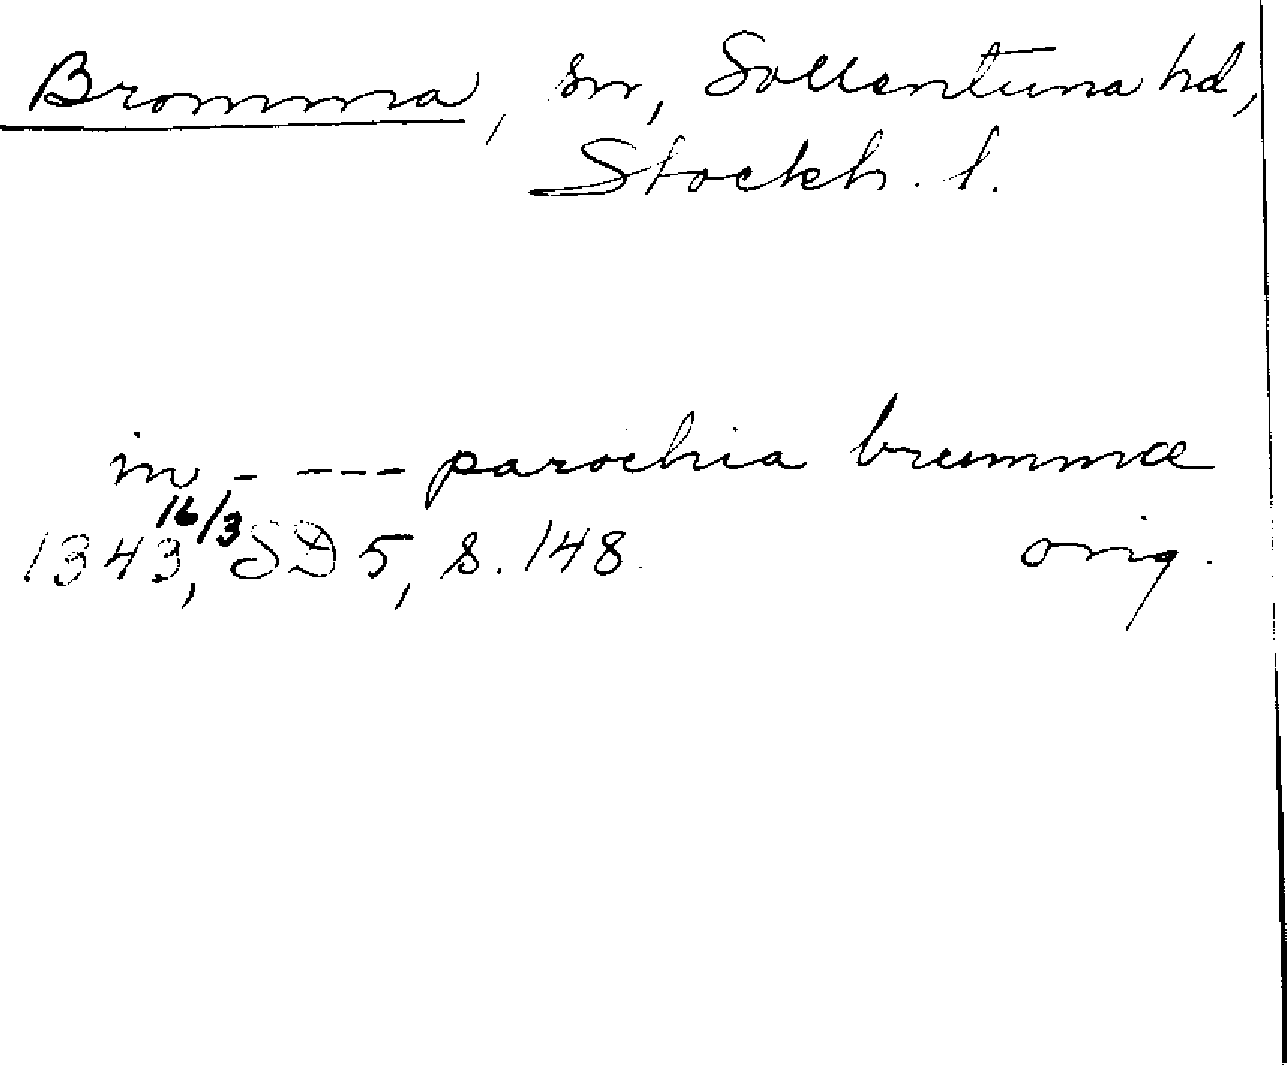 Bromma, sn, Sollentuna hd,
Stockh. l.
in - --- parochia brummæ
1343 16/3, SD 5, s. 148. orig.